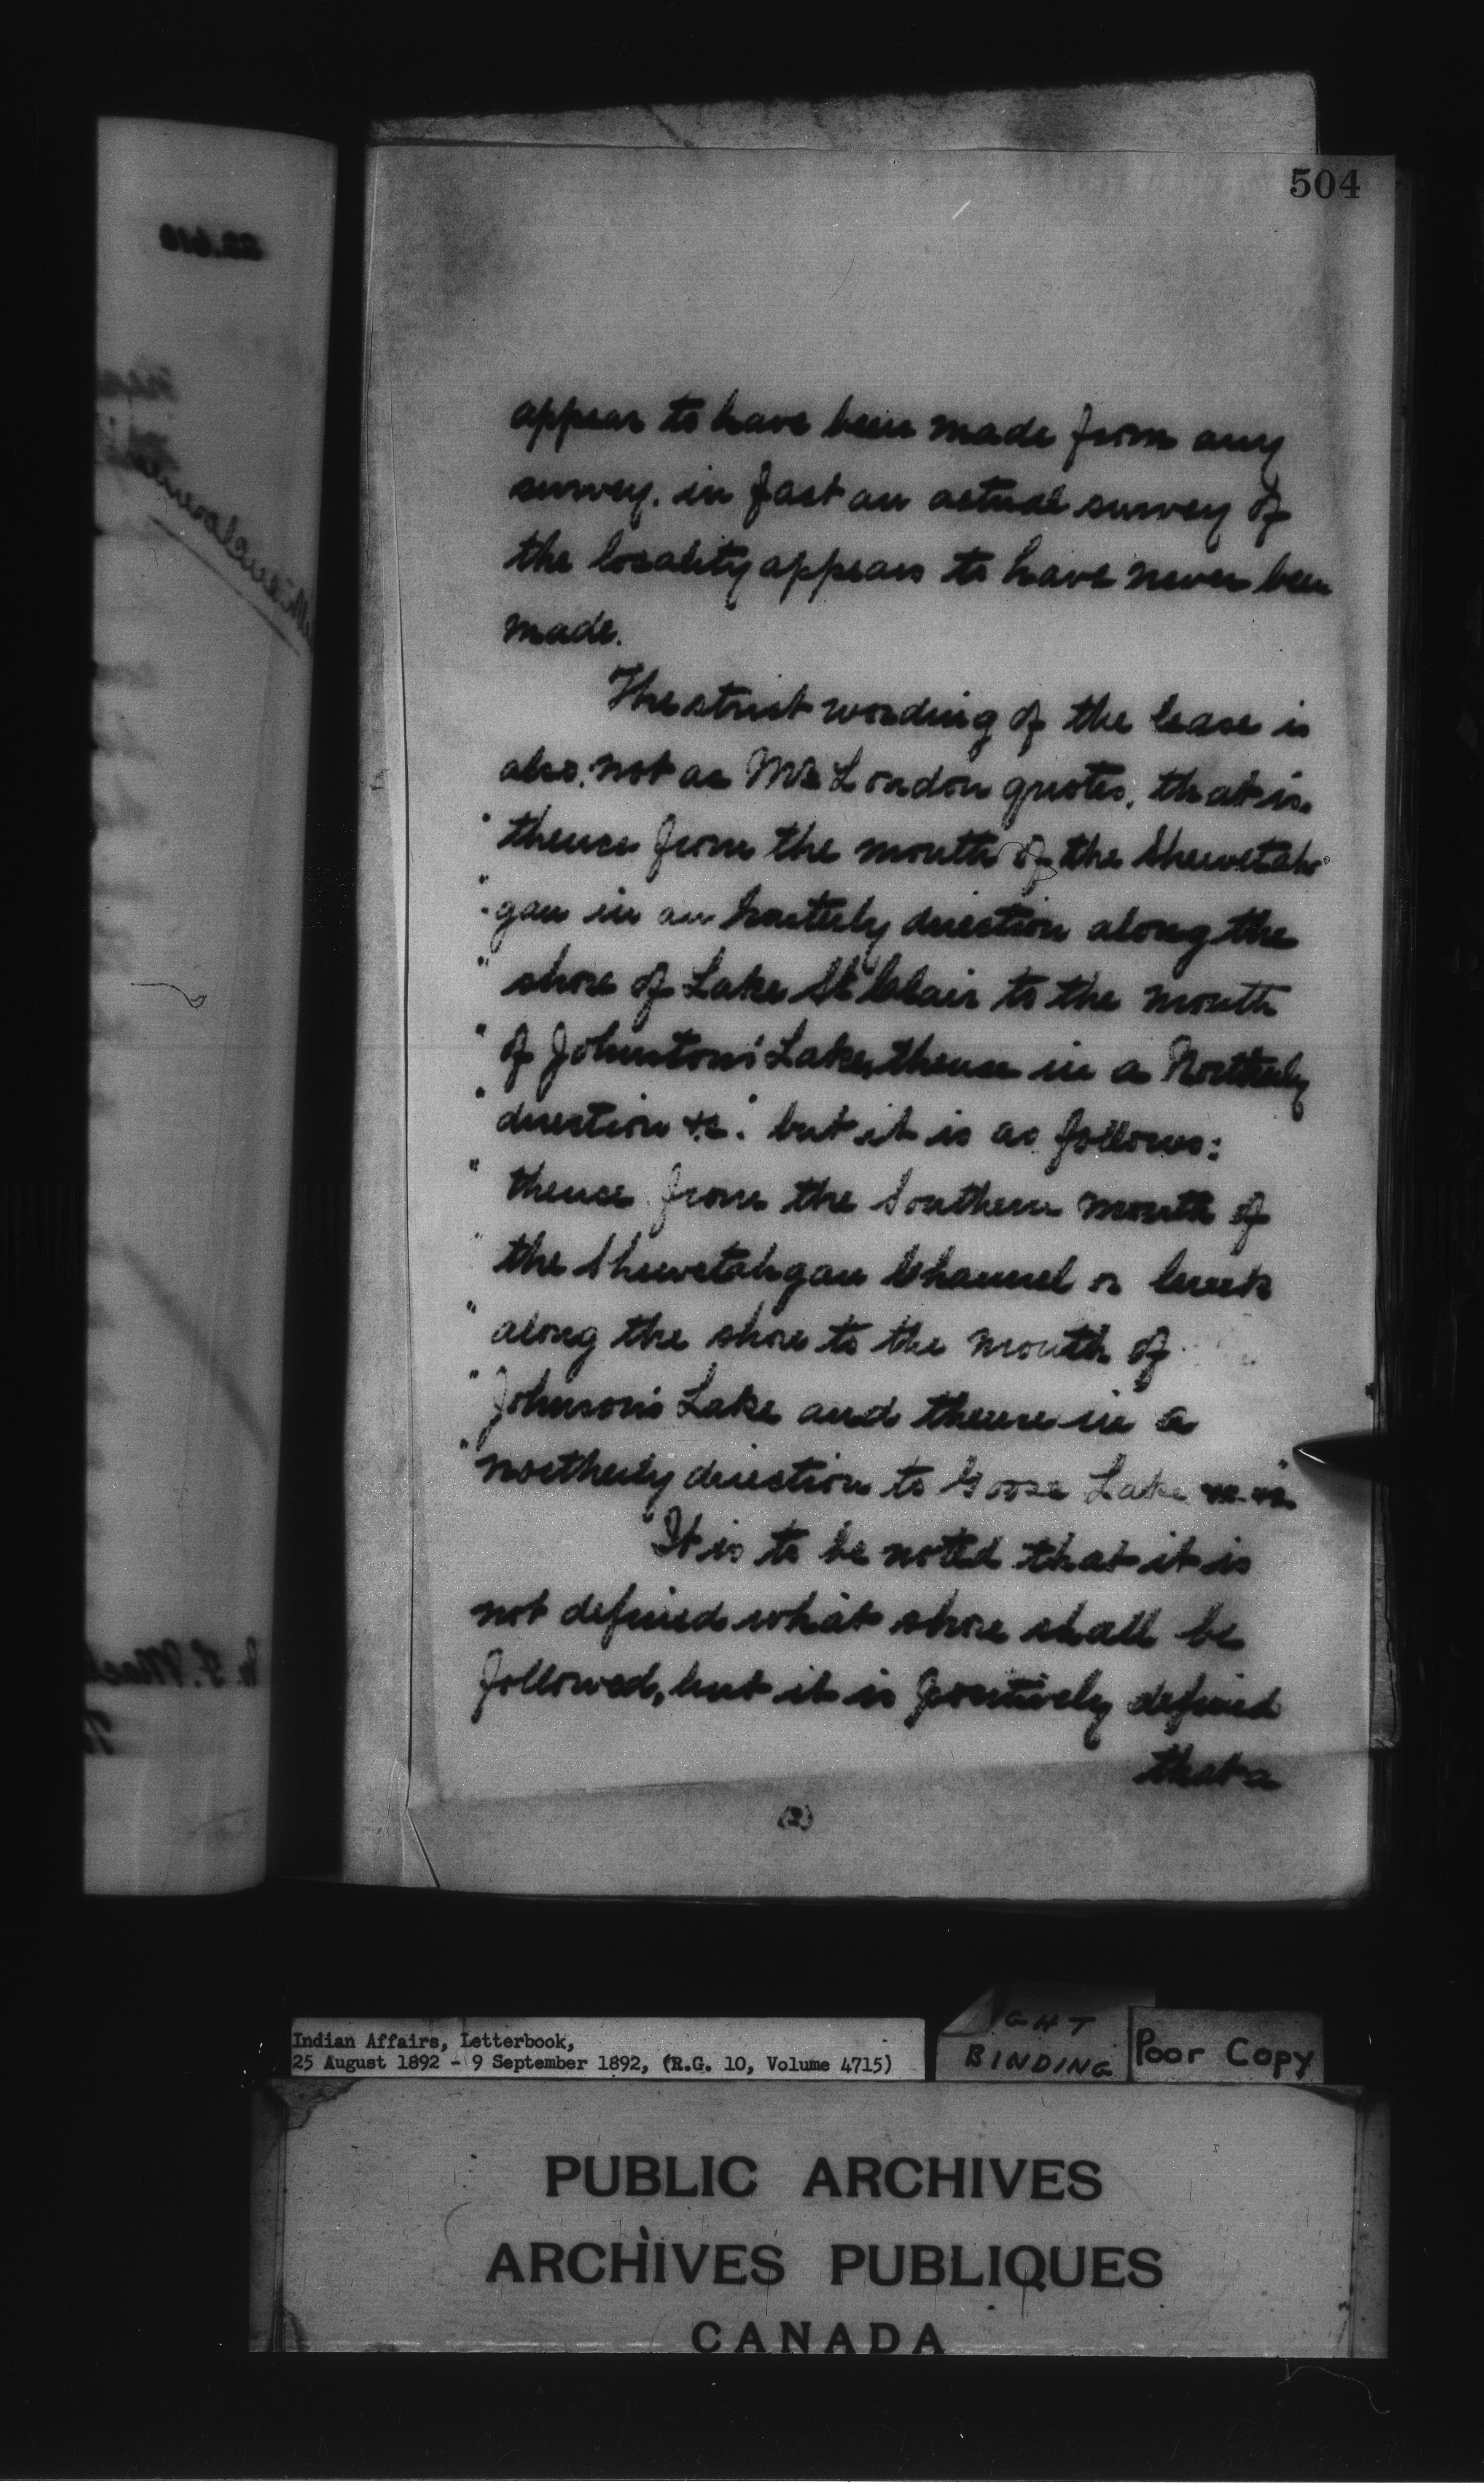 504
appear to have been made from any
survey. in fact an actual survey of
the locality appears to have never been
made.
The strict wording of the lease is
also, not as Mr Loudon quotes, that is
" thence from the mouth of the Shewetah
" gan in an Easterly direction along the
" shore of Lake St Clair to the mouth
" of Johnston's Lake, thence in a Northerly
" direction &c." but it is as follows:
" thence from the Southern mouth of
" the Shewetahgan Channel or Creek
" along the shore to the mouth of
" Johnson's Lake and thence in a
" northerly direction to Goose Lake &c. &c."
It is to be noted that it is
not defined what shore shall be
followed, but it is positively defined
that a
(2)
Indian Affairs, Letterbook,
25 August 1892 - 9 September 1892, (R.G. 10, Volume 4715)
GHT
BINDING
Poor Copy
PUBLIC ARCHIVES
ARCHIVES PUBLIQUES
CANADA